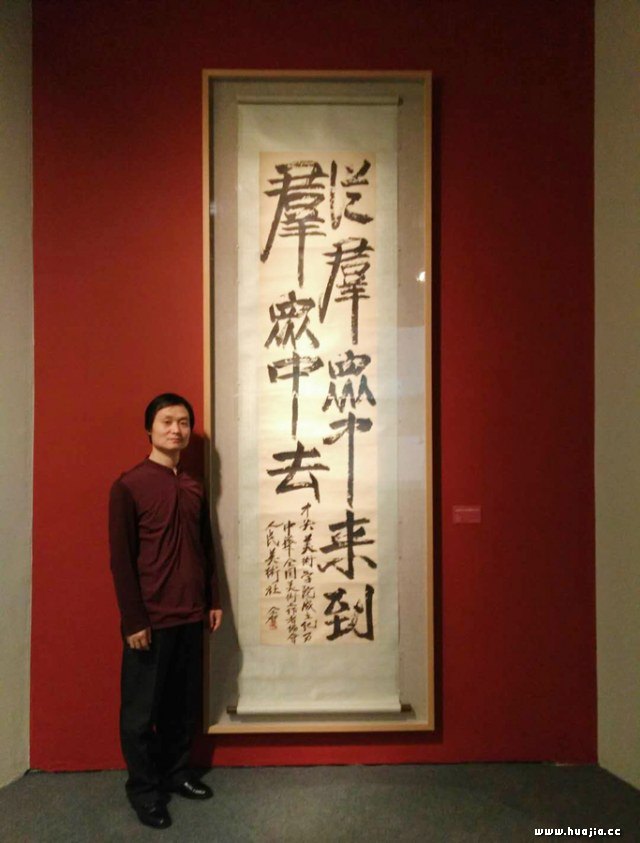 從羣眾中来到
羣眾中去
中央美術学院成立
中華全国美術工作者協會
人民美術社 仝賀
www.huajia.cc